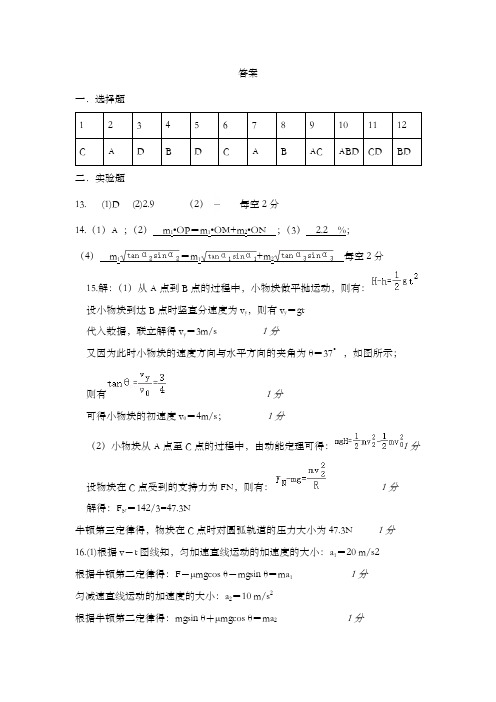 答案
一．选择题
1 2 3 4 5 6 7 8 9 10 11 12
C A D B D C A B AC ABD CD BD
二．实验题
13. (1)D (2)2.9 （2） － 每空 2 分
14.（1）A ;（2） m₁•OP＝m₁•OM+m₂•ON ;（3） 2.2 %;
（4） m₁√(tanα₂sinα₂)＝m₁√(tanα₁sinα₁)+m₂√(tanα₃sinα₃) 每空 2 分
15.解：（1）从 A 点到 B 点的过程中，小物块做平抛运动，则有：H-h=1/2 gt²
设小物块到达 B 点时竖直分速度为 vᵧ，则有 vᵧ＝gt
代入数据，联立解得 vᵧ＝3m/s 1 分
又因为此时小物块的速度方向与水平方向的夹角为 θ＝37°，如图所示；
则有 tanθ=vy/v0=3/4 1 分
可得小物块的初速度 v₀＝4m/s； 1 分
（2）小物块从 A 点至 C 点的过程中，由动能定理可得：mgH=1/2 mv₂²-1/2 mv₀² 1 分
设物块在 C 点受到的支持力为 FN，则有：F_N-mg=mv₂²/R 1 分
解得：F_N＝142/3=47.3N
牛顿第三定律得，物块在 C 点时对圆弧轨道的压力大小为 47.3N 1 分
16.(1)根据 v－t 图线知，匀加速直线运动的加速度的大小：a₁＝20 m/s2
根据牛顿第二定律得：F－μmgcos θ－mgsin θ＝ma₁ 1 分
匀减速直线运动的加速度的大小：a₂＝10 m/s²
根据牛顿第二定律得：mgsin θ＋μmgcos θ＝ma₂ 1 分